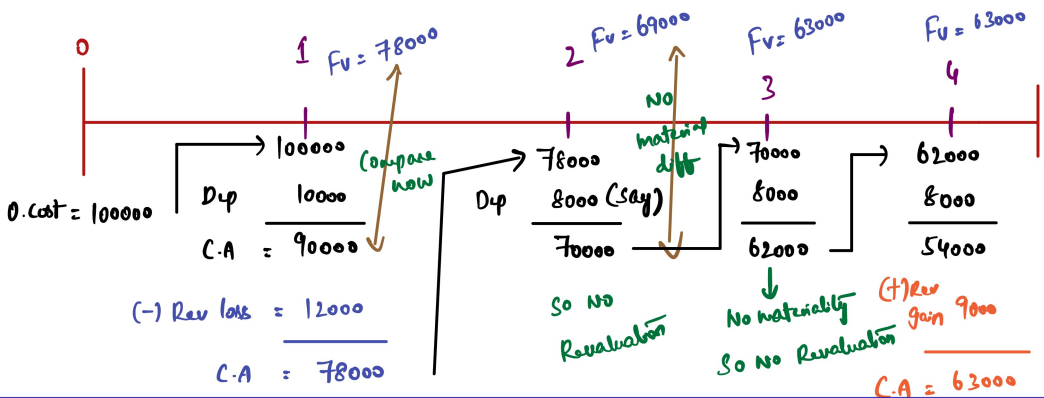 0
1
Fv = 78000
2
Fv = 69000
Fv = 63000
3
Fv = 63000
4
O.Cost = 100000
100000
Dep 10000
C.A = 90000
(-) Rev loss = 12000
C.A = 78000
Compare
now
78000
Dep 8000 (say)
70000
So No
Revaluation
No
material
diff
70000
8000
62000
No materiality
So No Revaluation
62000
8000
54000
(+) Rev
gain 9000
C.A = 63000